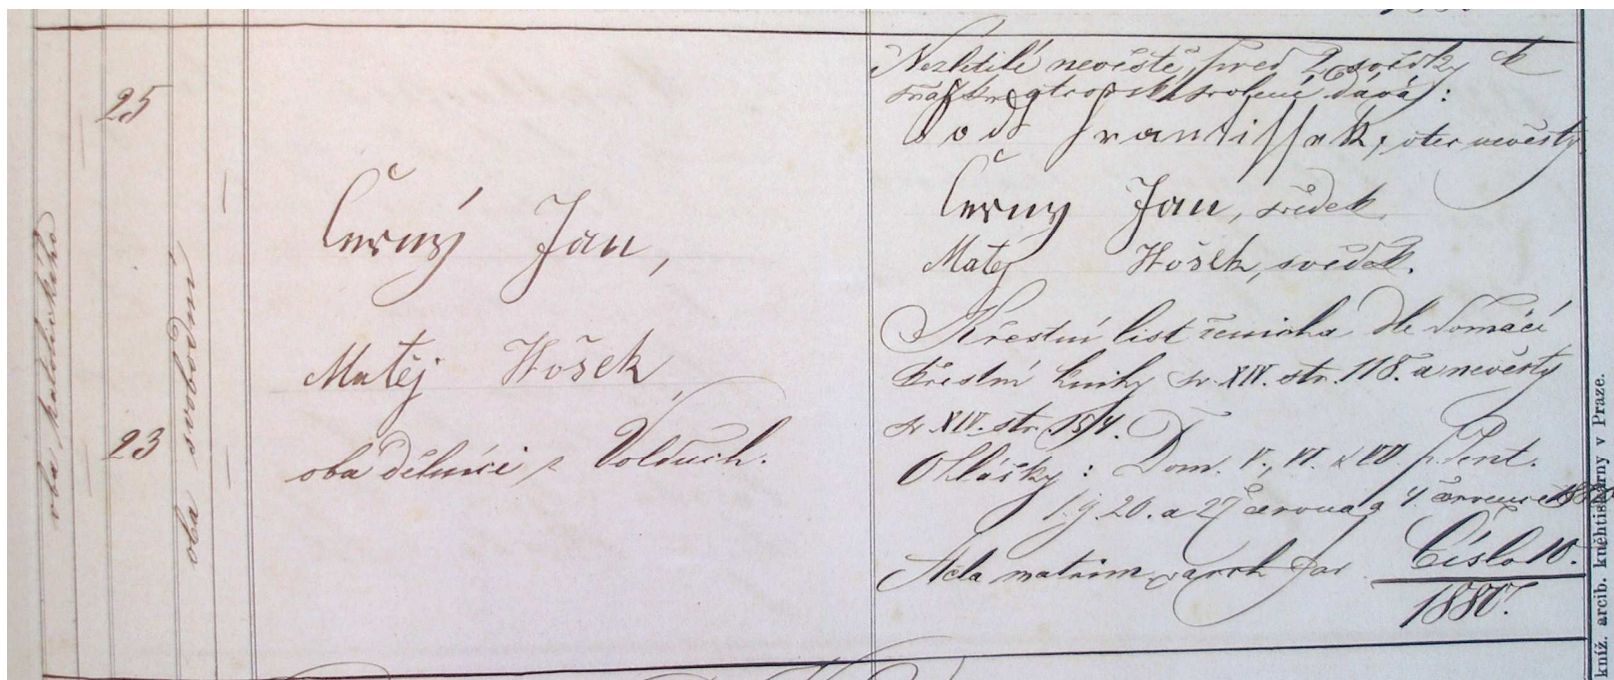 oba katolického
25
23
oba svobodni
Černý Jan,
Matěj Hošek,
oba dělníci z Volduch.
Nezletilé nevěstě před 2 svědky k
sňatku otcovské svolení dává:
František, otec nevěsty
Černy Jan, svědek.
Matěj Hošek, svědek.
Křestní list ženicha dle domácí
křestní knihy sv. XIV. str. 118. a nevěsty
sv. XIV. str. 154.
Ohlášky: Dom. V., VI. a VII. p. Pent.
t. j. 20. a 27. června a 4. července 1880
Acta matrim. arch. par. Číslo 10.
1880.
kníž. arcib. kněhtiskárny v Praze.